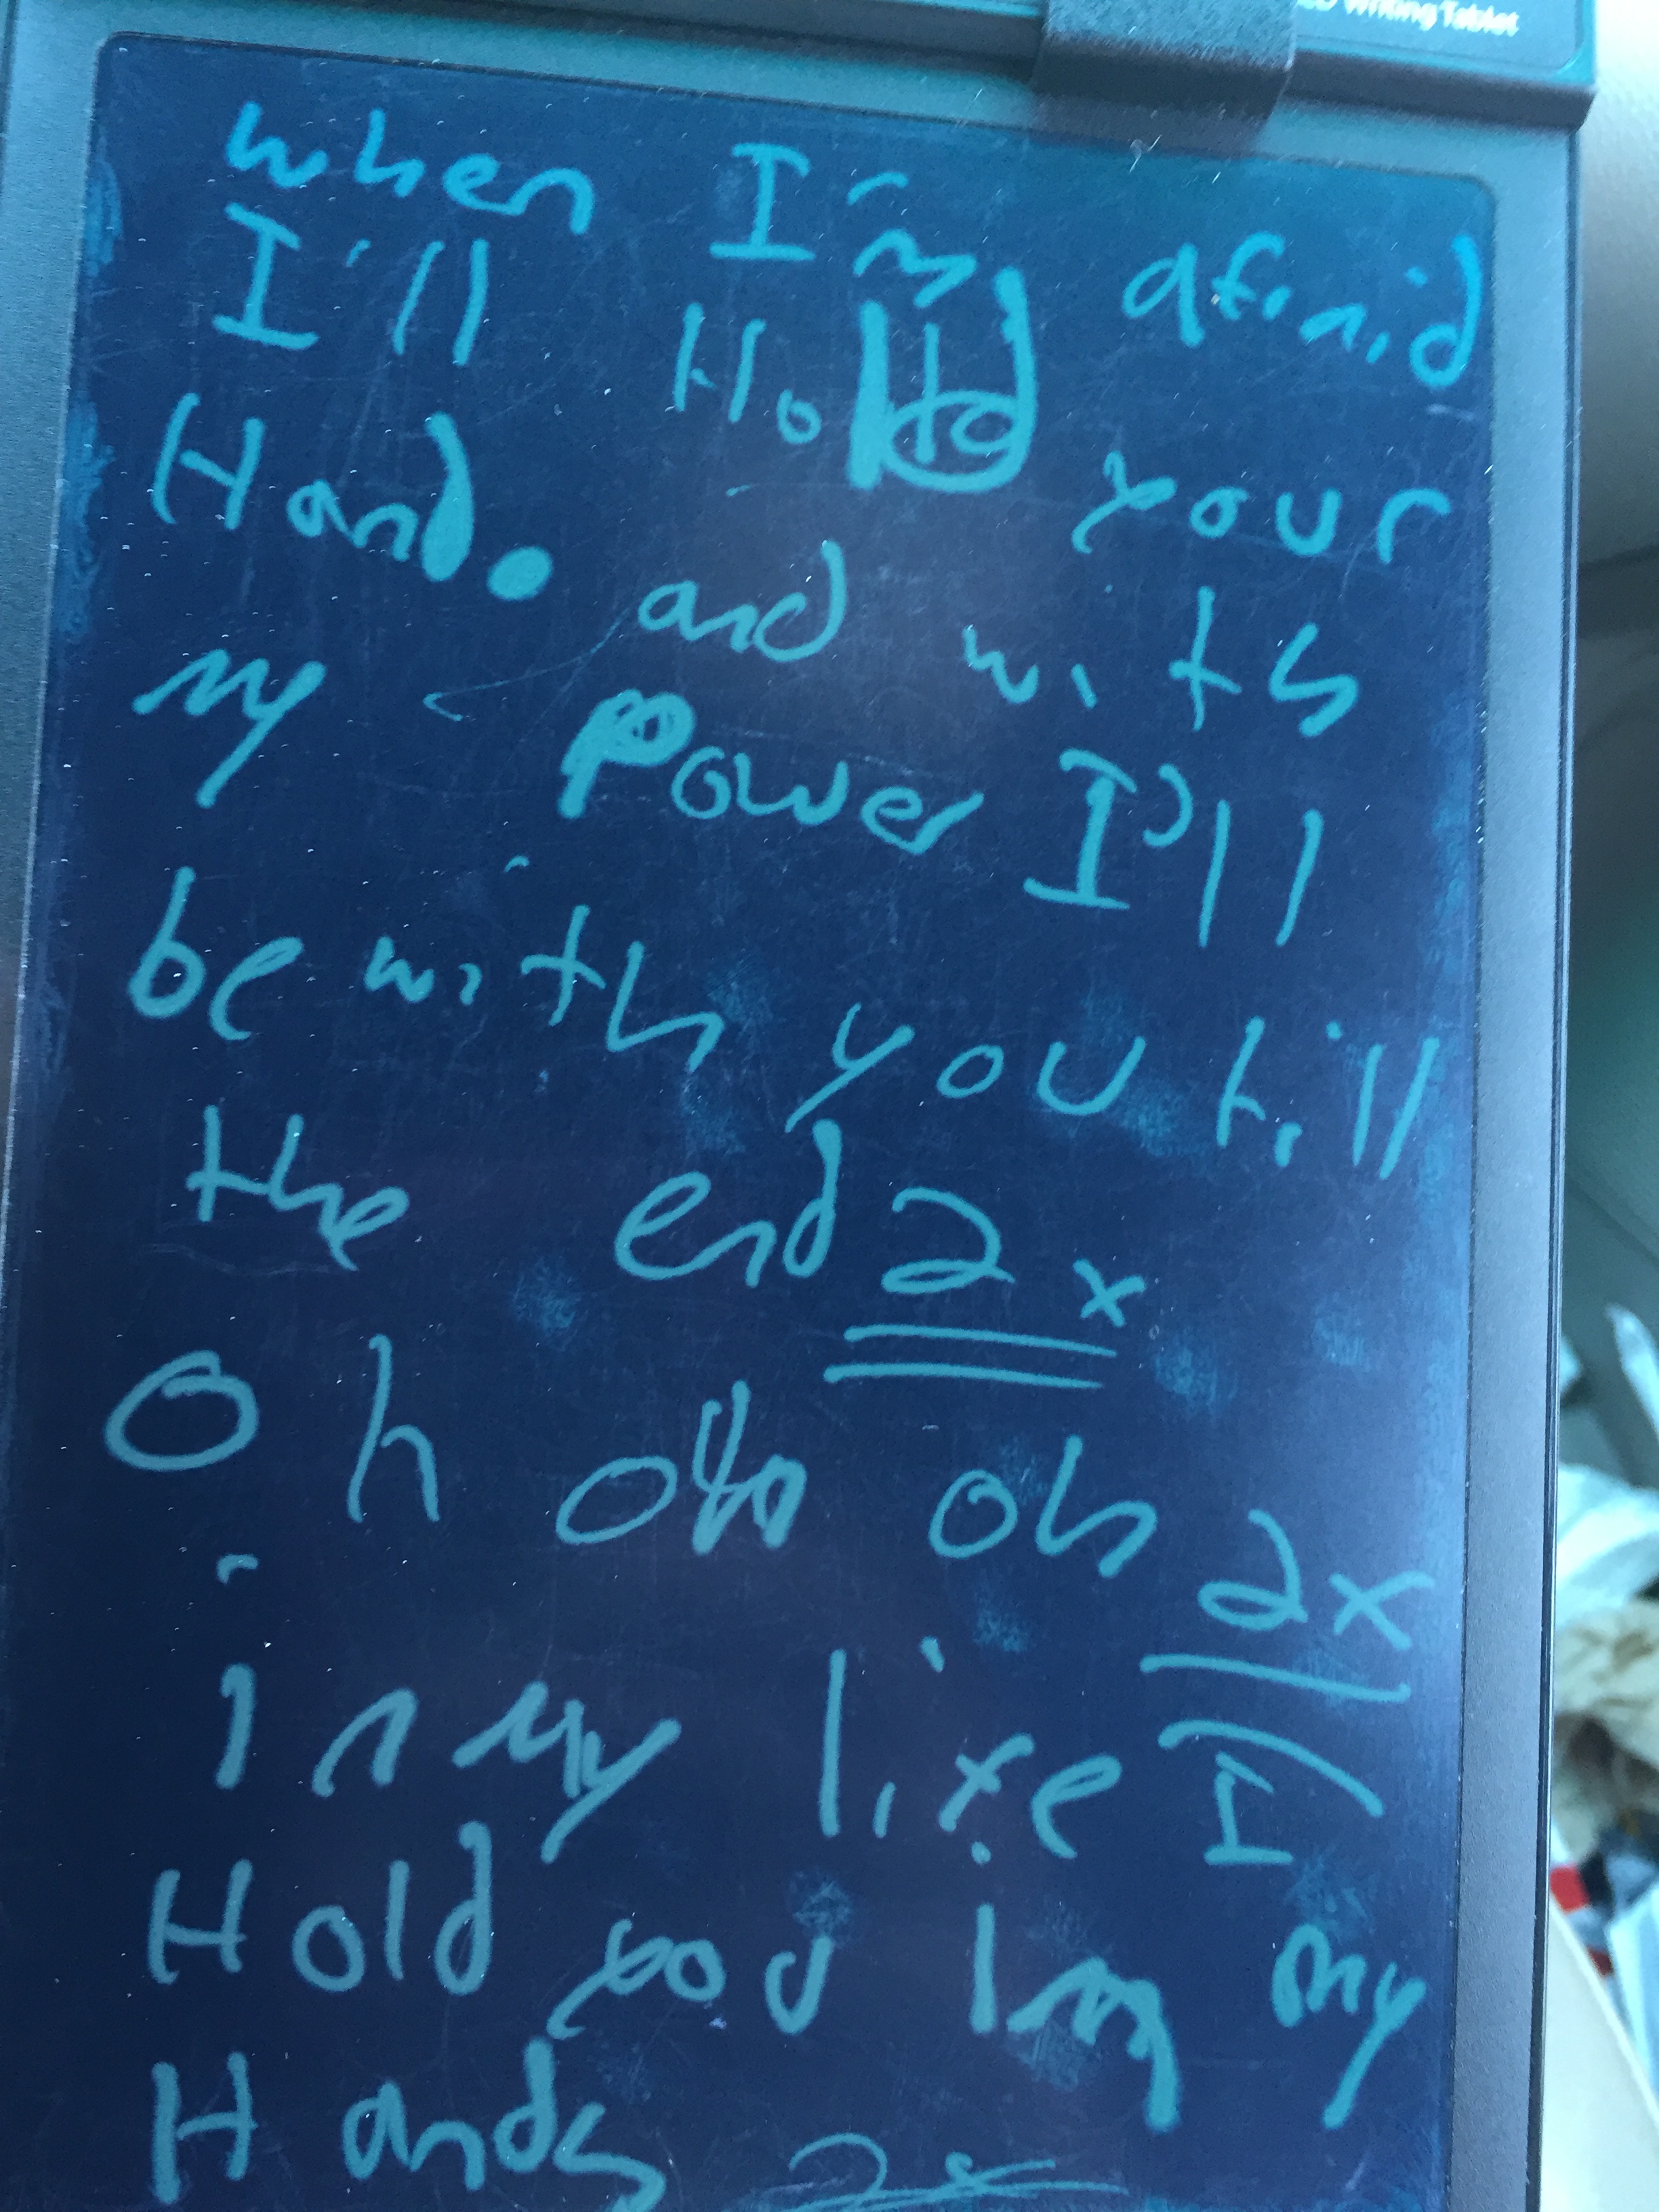 Writing Tablet
when I'm afraid
I'll Hold your
Hand. and with
my power I'll
be with you till
the end 2x
Oh oh oh 2x
in my life I
Hold you in my
Hands 2x